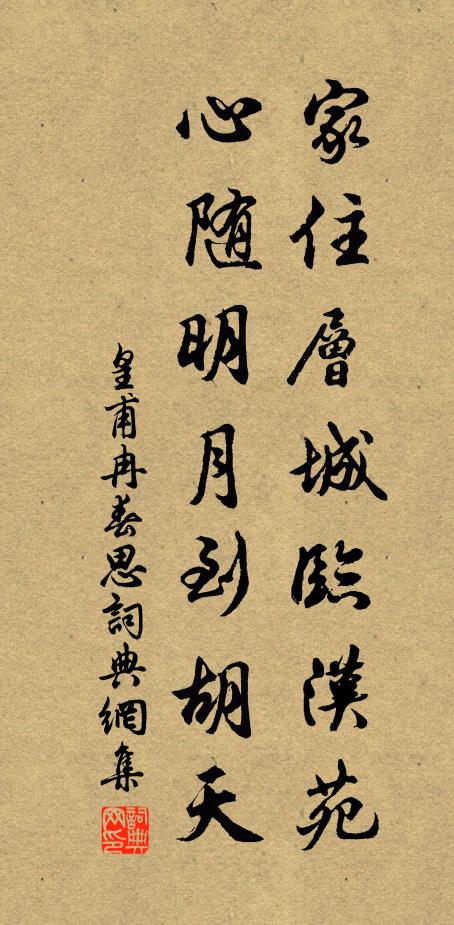 家住層城臨漢苑
心随明月到胡天
皇甫冉春思詞典網集
詞典网印